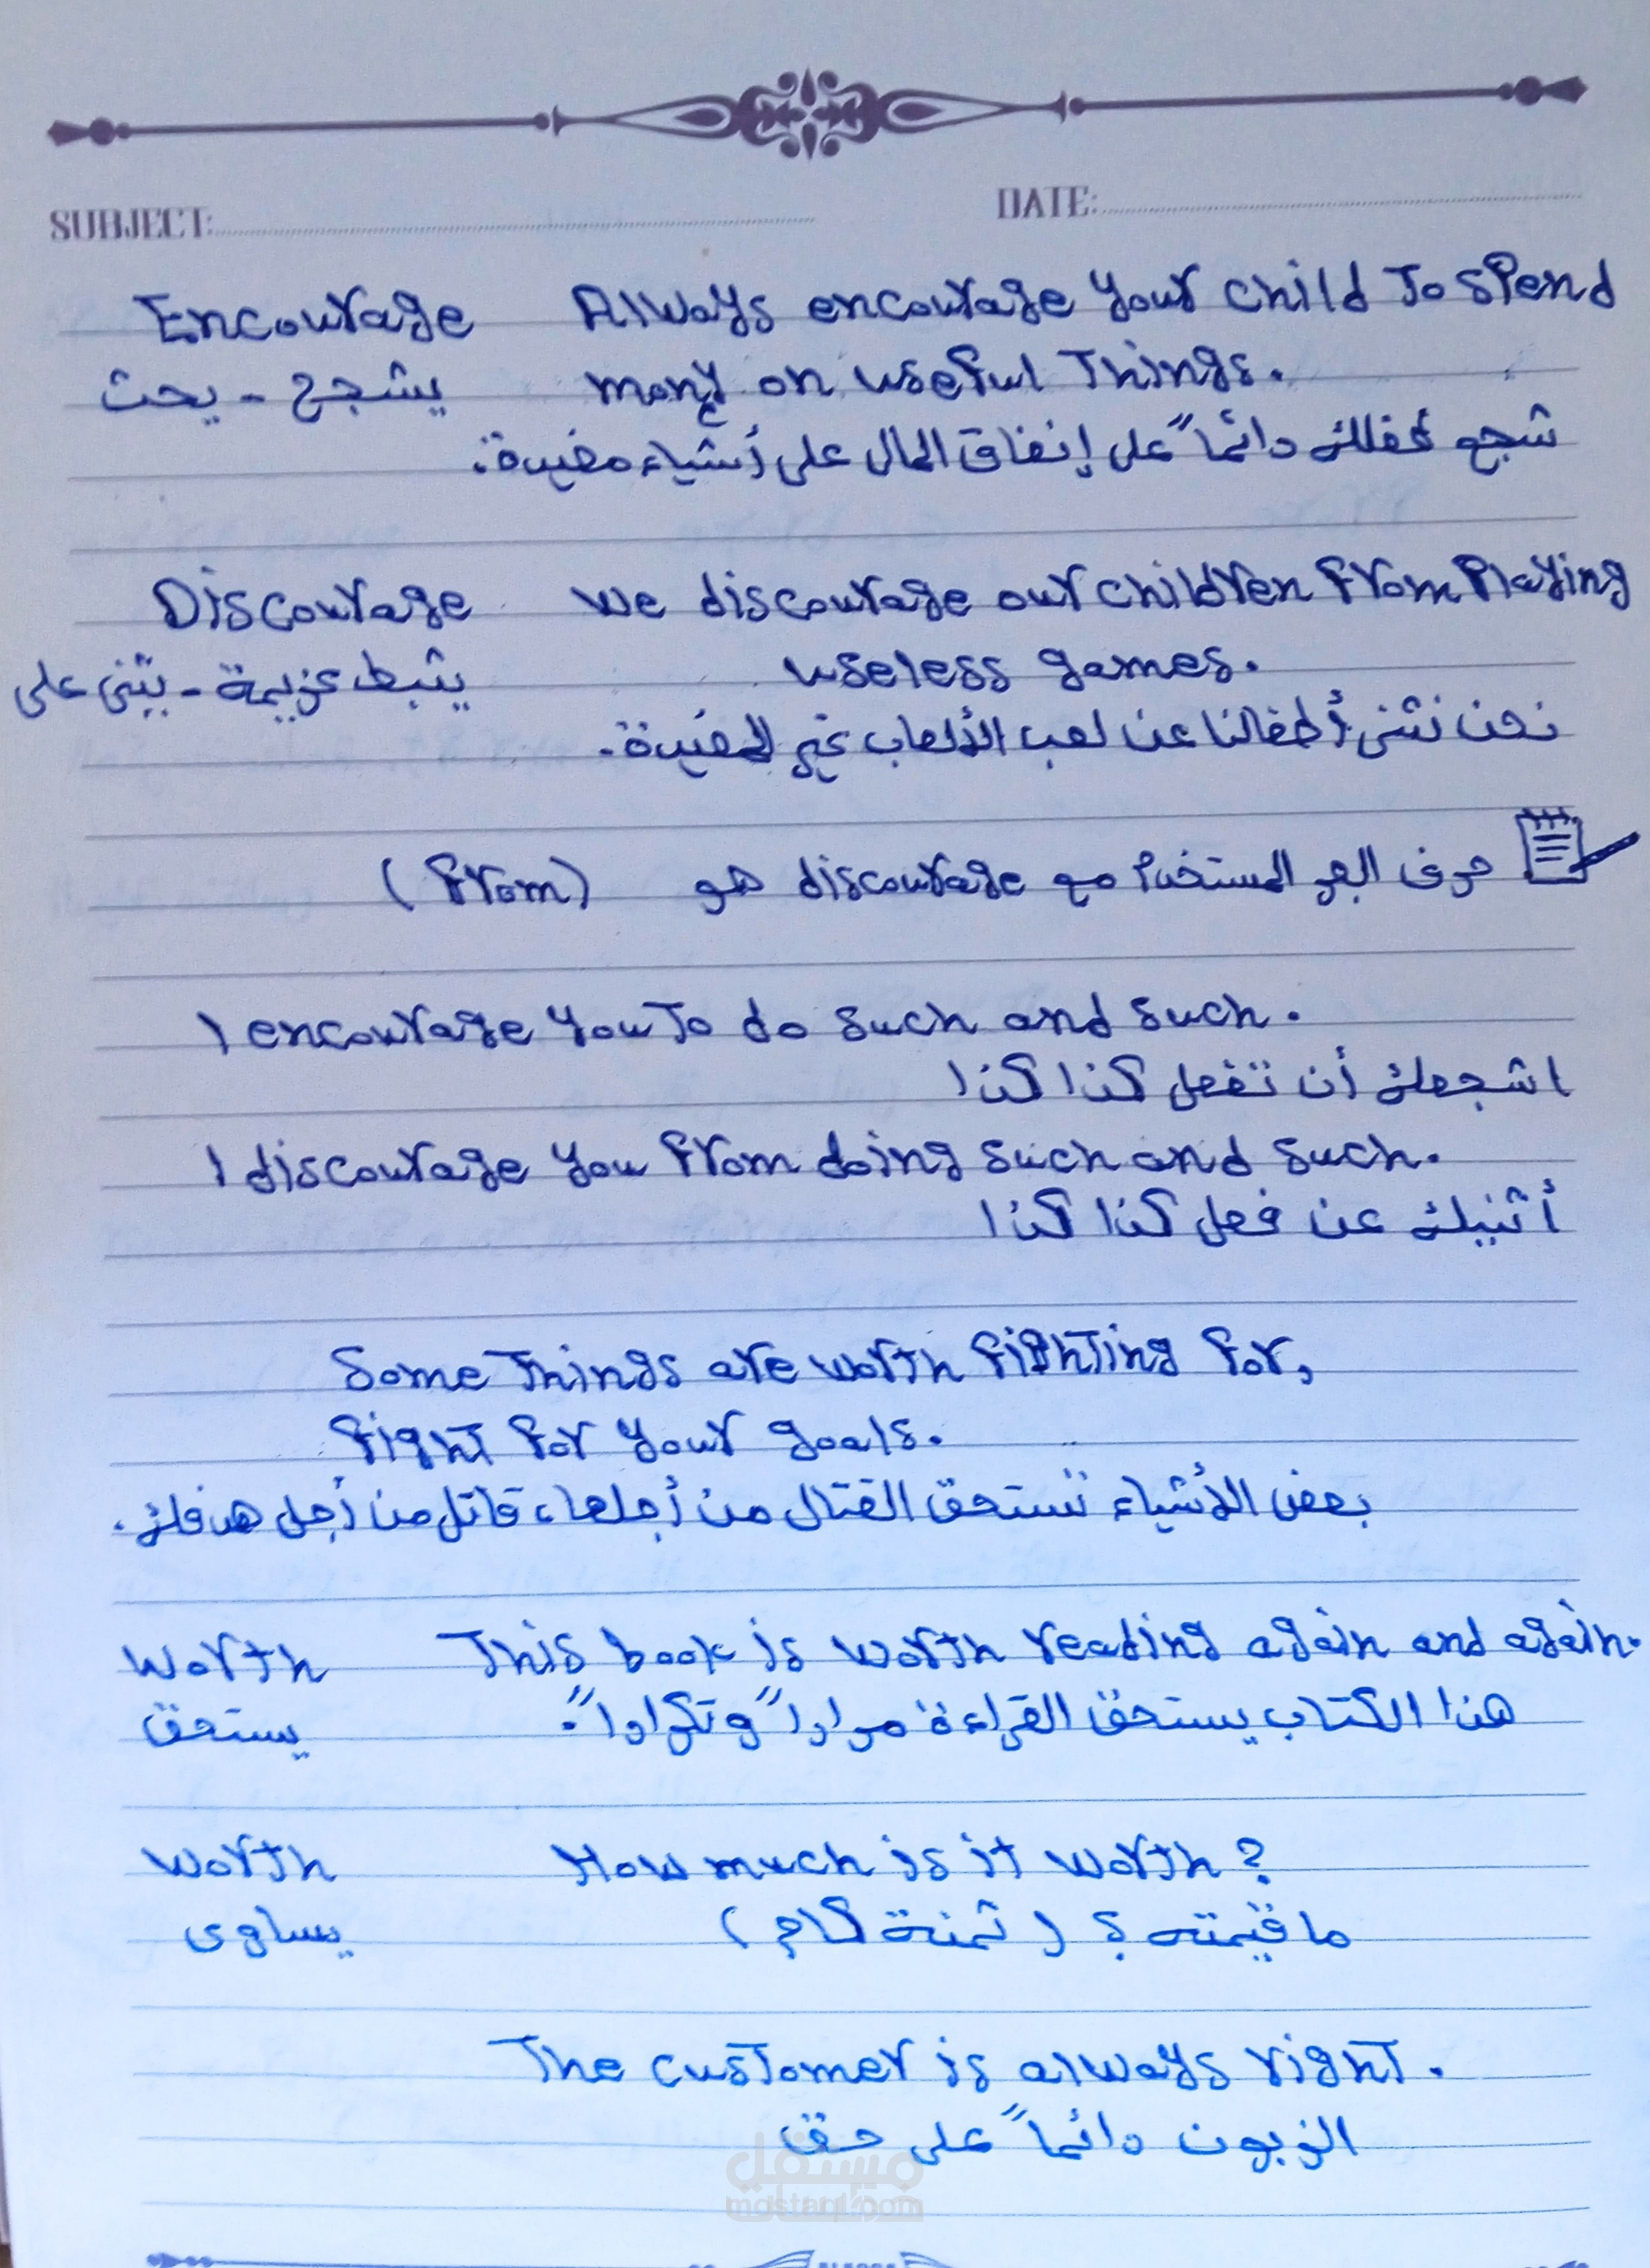 SUBJECT: DATE:
Encourage Always encourage your child To spend
يشجع - يحث mony on useful Things.
شجع طفلك دائماً على إنفاق المال على أشياء مفيدة.
Discourage we discourage our children from Playing
يثبط عزيمة - يثنى على useless games.
نحن نثنى أطفالنا عن لعب الألعاب غير المفيدة.
حرف الجر المستخدم مع discourage هو (from)
I encourage you To do such and such.
اشجعك أن تفعل كذا كذا
I discourage you from doing such and such.
أثنيك عن فعل كذا كذا
Some Things are worth fighting for,
fight for your goals.
بعض الأشياء تستحق القتال من أجلها، قاتل من أجل هدفك.
Worth This book is worth reading again and again.
يستحق هذا الكتاب يستحق القراءة مراراً وتكراراً.
worth How much is it worth?
يساوى ما قيمته؟ (ثمنة كام)
The customer is always right.
الزبون دائماً على حق
مستقل
mostaql.com